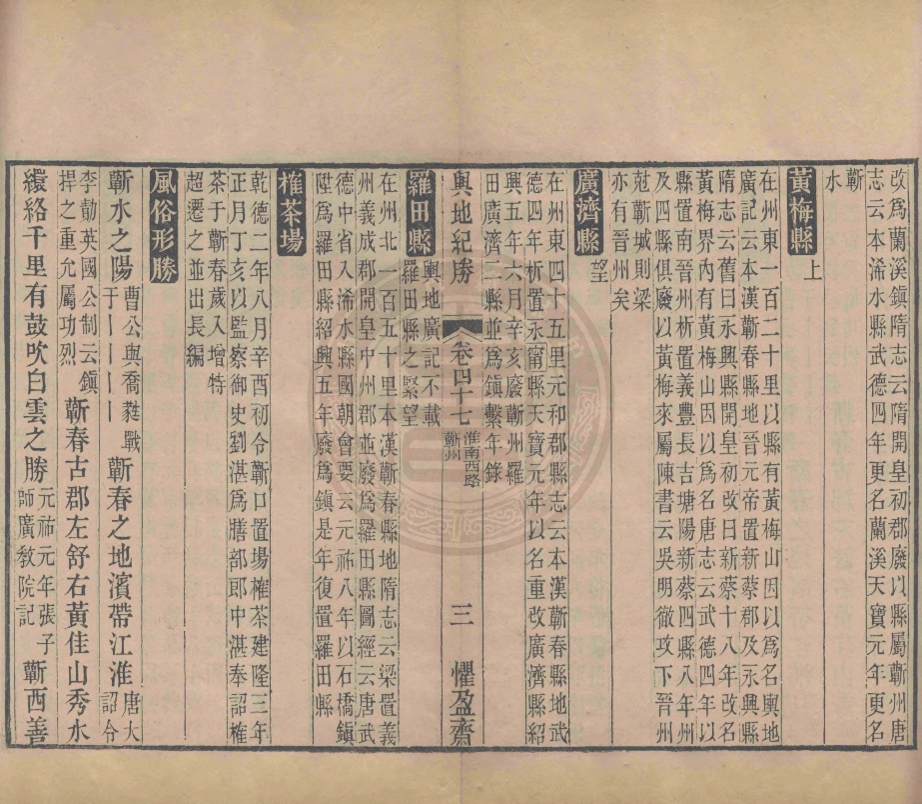 改爲蘭溪廣記云隋開皇初郡廢以縣屬蘄州唐
志云本浠水縣武德四年更名蘭溪天寶元年更名
蘄
水
黃梅縣上
在州東一百二十里以縣有黃梅山因以爲名輿地
廣記云本漢蘄春縣地晉元帝置新蔡郡及永興縣
隋志云舊曰永興縣開皇初改曰新蔡十八年改名
黃梅界內有黃梅山因以爲名唐志云武德四年以
縣置南晉州析置義豐長吉塘陽新蔡四縣八年州
及四縣俱廢以黃梅來屬陳書云吳明徹攻下晉州
尅蘄城則梁
亦有晉州矣
廣濟縣望
在州東四十五里元和郡縣志云本漢蘄春縣地武
德四年析置永甯縣天寶元年以名重改廣濟縣紹
興五年六月辛亥廢蘄州羅
田廣濟二縣並爲鎮繫年錄
輿地紀勝 卷四十七 淮南西路 蘄州 三 懼盈齋
羅田縣 輿地廣記不載
羅田縣之緊望
在州北一百五十里本漢蘄春縣地隋志云梁置義
州義成郡開皇中州郡並廢爲羅田縣圖經云唐武
德中省入浠水縣國朝會要云元祐八年以石橋鎮
陞爲羅田縣紹興五年廢爲鎮是年復置羅田縣
榷茶場
乾德二年八月辛酉初令蘄口置場榷茶建隆三年
正月丁亥以監察御史劉湛爲膳部郎中湛奉詔榷
茶于蘄春歲入增特
超遷之並出長編
風俗形勝
蘄水之陽 曹公與喬蕤戰
于丨丨丨丨 蘄春之地濱帶江淮 唐大
詔令
李勣英國公制云鎮
捍之重允屬功烈 蘄春古郡左舒右黃佳山秀水
繚絡千里有鼓吹白雲之勝 元祐元年張子
師廣教院記 蘄西善